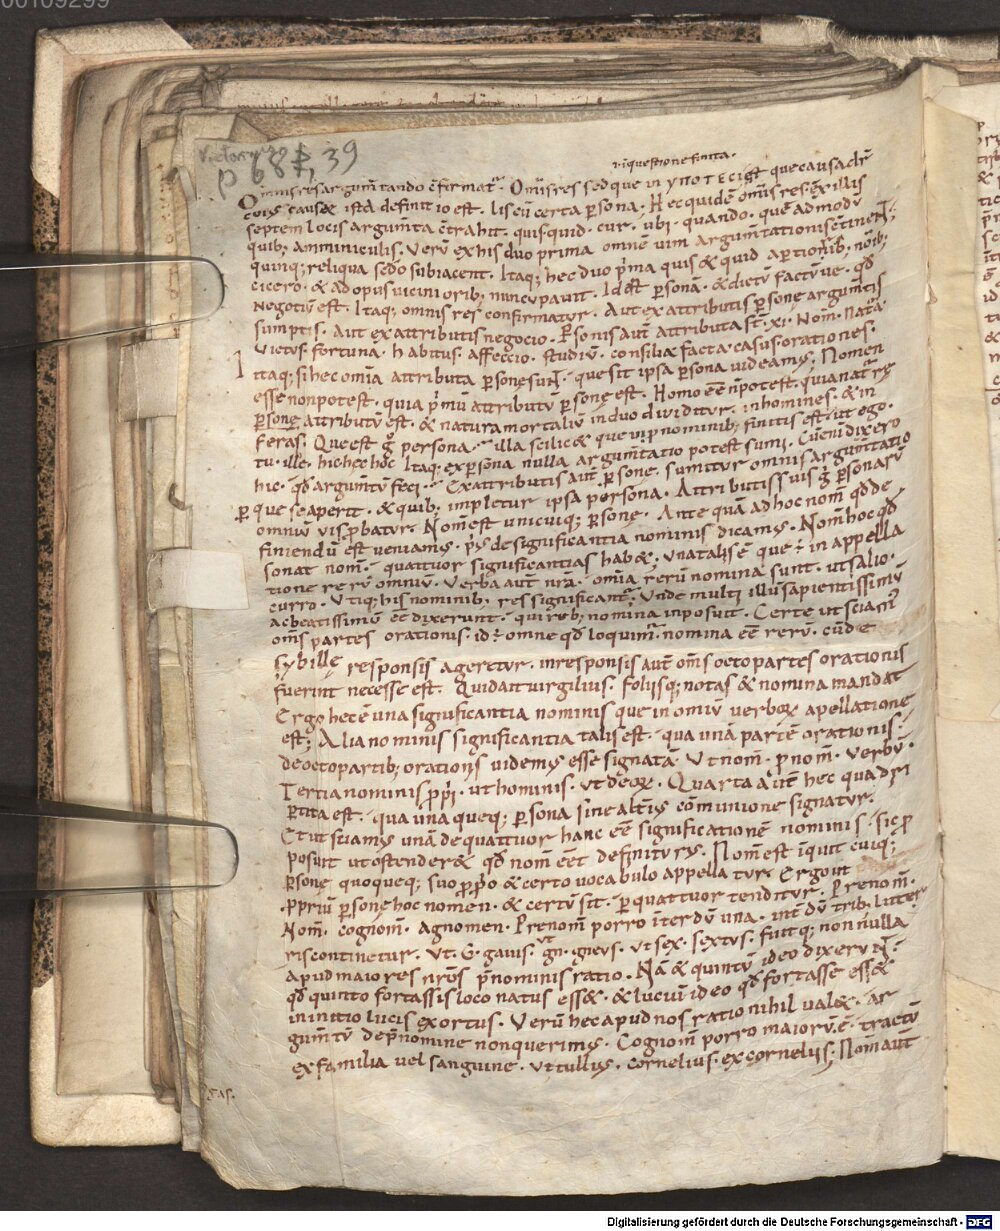 00109299
Victorinus
p 687, 39
.i. in questione finita.
Omnis res argum̄tando c̄firmat᷑. Om̄is res sed que in ypotec. i. est que causa dr̄
cuius causeꝝ ista definitio est. Lis cū certa ꝑsona. Hec quidē om̄is res. Ex illis
septem locis argum̄ta c̄trahit. quis. quid. cur. ubi. quando. quēadmodū
quib; amminiculis. Verū ex his duo prima omnē uim argum̄tationis c̄tinent;
quinq; reliqua sed̄o subiacent. Itaq; hec duo p̄ma quis & quid apertionib; noīb;
cicero. & ad opus uicinioribˀ nuncupauit. Id est ꝑsona. & dictū factūue. qd̄
negotiū est. Itaq; omnis res confirmatur. Aut ex attributis ꝑsone argum̄tis
sumptis. Aut ex attributis negocio. Ꝑsonis aut̄ attributa st̄. xi. Nom̄. natura.
uictus. fortuna. habitus. affeccio. studiū. consilia. facta. casus. orationes.
Itaq; si hec om̄ia attributa ꝑsonę sunt. que sit ipsa ꝑsona uideamꝰ. Nomen
esse non potest. quia p̄mū attributū ꝑsonę est. Homo eē n̄ potest. quia nat᷑a rꝰ
ꝑsonę attributū est. & natura mortaliū in duo diuiditur. in homines. & in
feras. Que est g̊ persona. illa scilic& que ui ꝓnominib; finitis est. ut ego.
tu. ille. hic hec hoc. Itaq; ex ꝑsona nulla argum̄tatio potest sumi. Cū eni dixero
hic. qd̄ argum̄tū feci. Ex attributis aut̄ ꝑsone. sumitur omnis argum̄tatio
per que se aperit. & quib; impletur ipsa persona. Attributis suis g̊ ꝑsonarū
omniū uis ꝓbatur. Nom̄ est unicuiq; ꝑsonę. Ante quā ad hoc nom̄ qd̄ de
finiendū est ueniamꝰ. p̄us de significantia nominis dicamꝰ. Nom̄ hoc qd̄
sonat nom̄. quattuor significantias hab&; una talis ē que ē in appella
tione rerū omniū. Verba aut̄ nr̄a. om̄ia rerū nomina sunt. ut salio.
curro. Utiq; his nominib; res significant᷑; Unde multi illū sapientissimū
ac beatissimū eē dixerunt. qui reb; nomina inposuit. Certe ut sciamꝰ
om̄s partes orationis. id ē omne qd̄ loquim᷑ nomina eē rerū. cū de
sybillę responsis agertur. in responsis aut̄ om̄s octo partes orationis
fuerint necesse est. Quid ait uirgilius. foliisq; notas & nomina mandat
Ergo hec ē una significantia nominis que in omiū uerboꝝ apellatione
est; Alia nominis significantia talis est. qua unā partē orationis.
de octo partib; orationis uidemꝰ esse signatā. Ut nom̄. ꝓnom̄. uerbū.
Tertia nominis ꝓprii. ut hominis. ut deoꝝ. Quarta aut̄ hec quadri
ꝑtita est. qua una queq; ꝑsona sine alt̄iꝰ cōmunione signatur.
Et ut sciamꝰ unā de quattuor hanc eē significationē nominis. sic ꝓ
posuit ut ostender& qd̄ nom̄ eēt definiturꝰ. Nom̄ est inquit cuiq;
ꝑsonę quoqueq; suo ꝓprio & certo uocabulo appellatur. Ergo ut
ꝓpriū ꝑsonę hoc nomen. & certū sit. ꝑ quattuor tenditur. Prenom̄.
Nom̄. cognom̄. Agnomen. Prenom̄ porro int̄dū una. int̄dū trib; litte
ris continetur. Ut. G. gaius. ut gn̄. gneus. ut sex. sextus. fuitq; non nulla
apud maiores nr̄os p̄nominis ratio. Nā & quintū ideo dixerunt.
qd̄ quinto fortassis loco natus ess&. & luciū ideo qd̄ fortasse ess&
in initio lucis exortus. Verū hec apud nos ratio nihil ual&. ar
gum̄tū de p̄nomine non querimꝰ. Cognom̄ porro maiorū ē. tractū
ex familia uel sanguine. ut tullius. cornelius. ex corneliis. Nom̄ aut̄
Digitalisierung gefördert durch die Deutsche Forschungsgemeinschaft - DFG